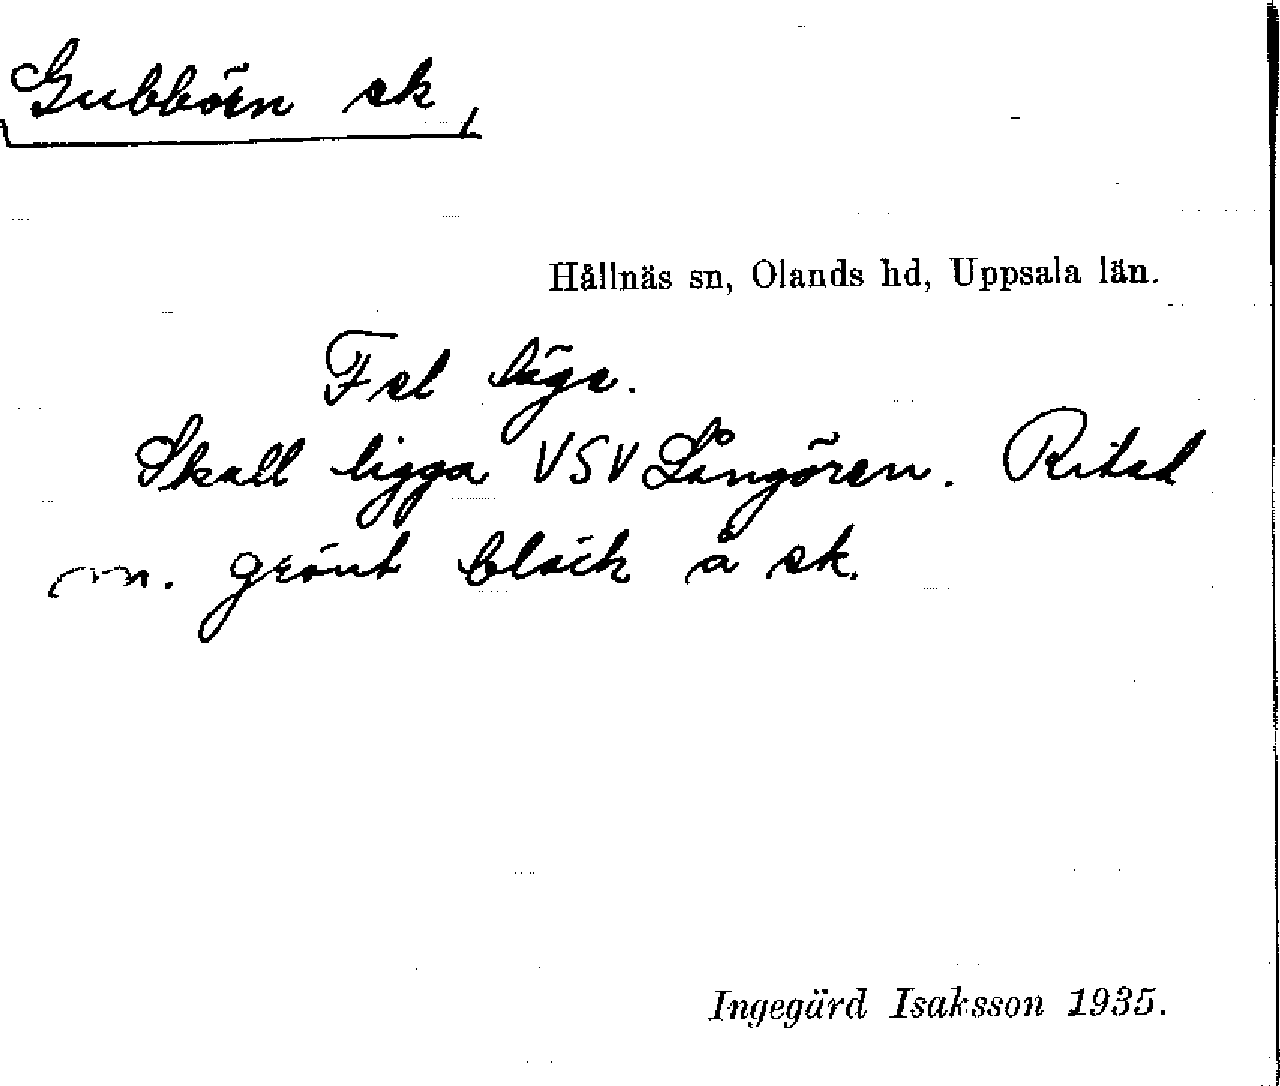 Gubbörn sk
Hållnäs sn, Olands hd, Uppsala län.
Fel läge.
Skall ligga VSV Långören. Ritad
m. grönt bläck å sk.
Ingegärd Isaksson 1935.